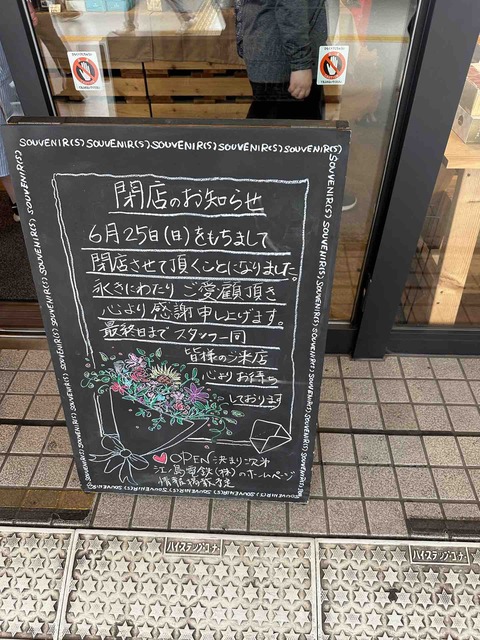 SOUVENIR(S) SOUVENIR(S) SOUVENIR(S) SOUVENIR(S) SOUVENIR(S)
閉店のお知らせ
6月25日(日)をもちまして
閉店させて頂くことになりました。
永きにわたり ご愛顧頂き
心より 感謝申し上げます。
最終日まで スタッフ一同
皆様のご来店
心よりお待ち
しております
OPEN 決まり次第
江ノ島電鉄(株)のホームページ
情報掲載予定
ハイ・ステップ・コーナー
ハイ・ステップ・コーナー